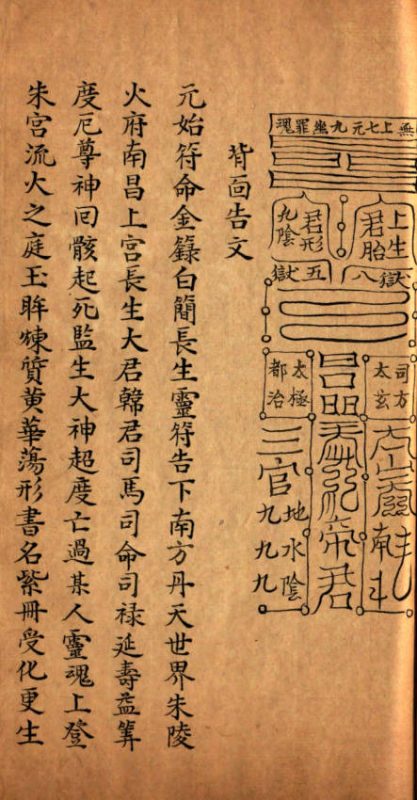 無上七元九幽罪魂
上生君胎
君形九陰
八獄
五獄
司方太玄
太極都治
南斗
帝君
三官
地水陰
九九九
背面告文
元始符命金籙白簡長生靈符告下南方丹天世界朱陵
火府南昌上宮長生大君韓君司馬司命司禄延壽益筭
度厄尊神囘骸起死監生大神超度亡過某人靈魂上登
朱宮流火之庭玉眸煉質黄華蕩形書名紫冊受化更生